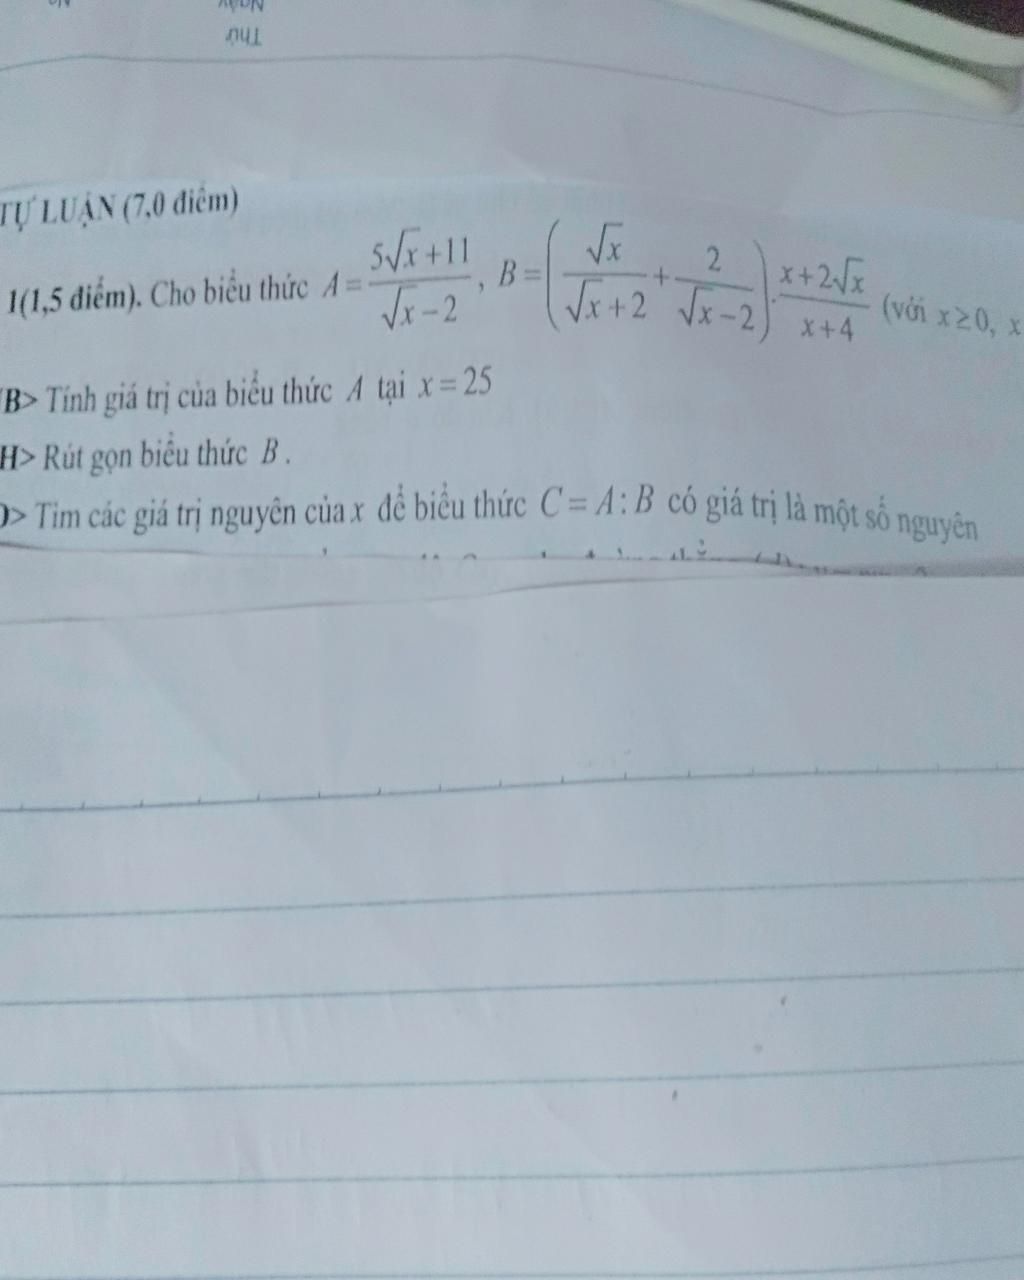 Thứ
TỰ LUẬN (7,0 điểm)
1(1,5 điểm). Cho biểu thức A = (5√x + 11)/(√x − 2), B = (√x/(√x + 2) + 2/(√x − 2)) . (x + 2√x)/(x + 4) (với x ≥ 0, x
B> Tính giá trị của biểu thức A tại x = 25
H> Rút gọn biểu thức B .
> Tìm các giá trị nguyên của x để biểu thức C = A : B có giá trị là một số nguyên